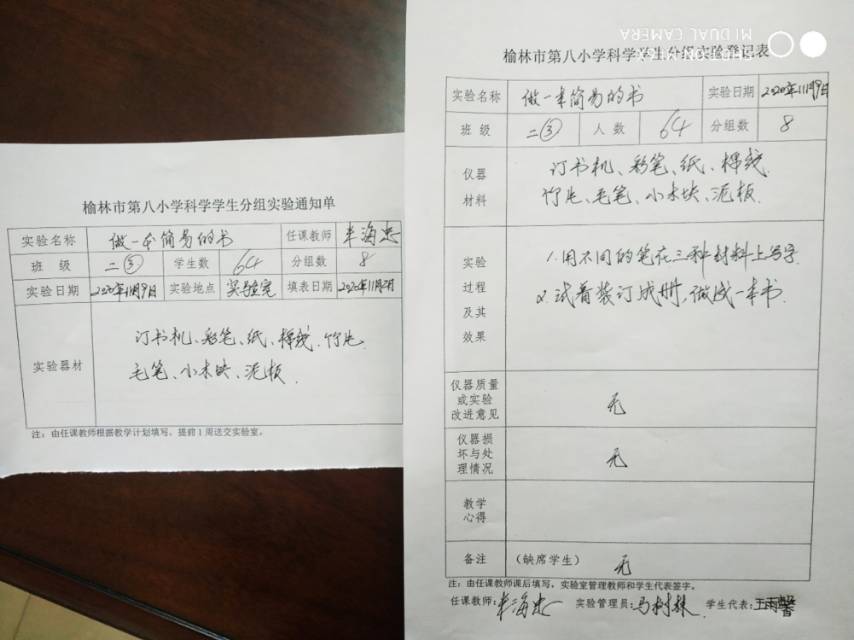 榆林市第八小学科学学生分组实验通知单
实验名称 做一本简易的书 任课教师
班 级 二③ 学生数 64 分组数 8
实验日期 2020年11月9日 实验地点 实验室 填表日期 2020年11月2日
实验器材
订书机、彩笔、纸、棉线、竹片、
毛笔、小木块、泥板.
注:由任课教师根据教学计划填写,提前1周送交实验室。
SHOT ON MI 6X
MI DUAL CAMERA
榆林市第八小学科学学生分组实验登记表
实验名称 做一本简易的书 实验日期 2020年11月9日
班 级 二③ 人 数 64 分组数 8
仪器
材料
订书机、彩笔、纸、棉线、
竹片、毛笔、小木块、泥板.
实验
过程
及其
效果
1.用不同的笔在三种材料上写字
2.试着装订成册,做成一本书.
仪器质量
或实验
改进意见
无
仪器损
坏与处
理情况
无
教学
心得
备注 (缺席学生) 无
注:由任课教师课后填写,实验室管理教师和学生代表签字。
任课教师: 实验管理员:马树林 学生代表:王雨馨